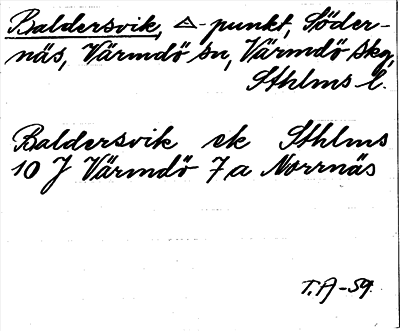 Baldersvik, △-punkt, Söder-
näs, Värmdö sn, Värmdö skg,
Sthlms l.
Baldersvik ek Sthlms
10 J Värmdö 7a Norrnäs
T.A-59